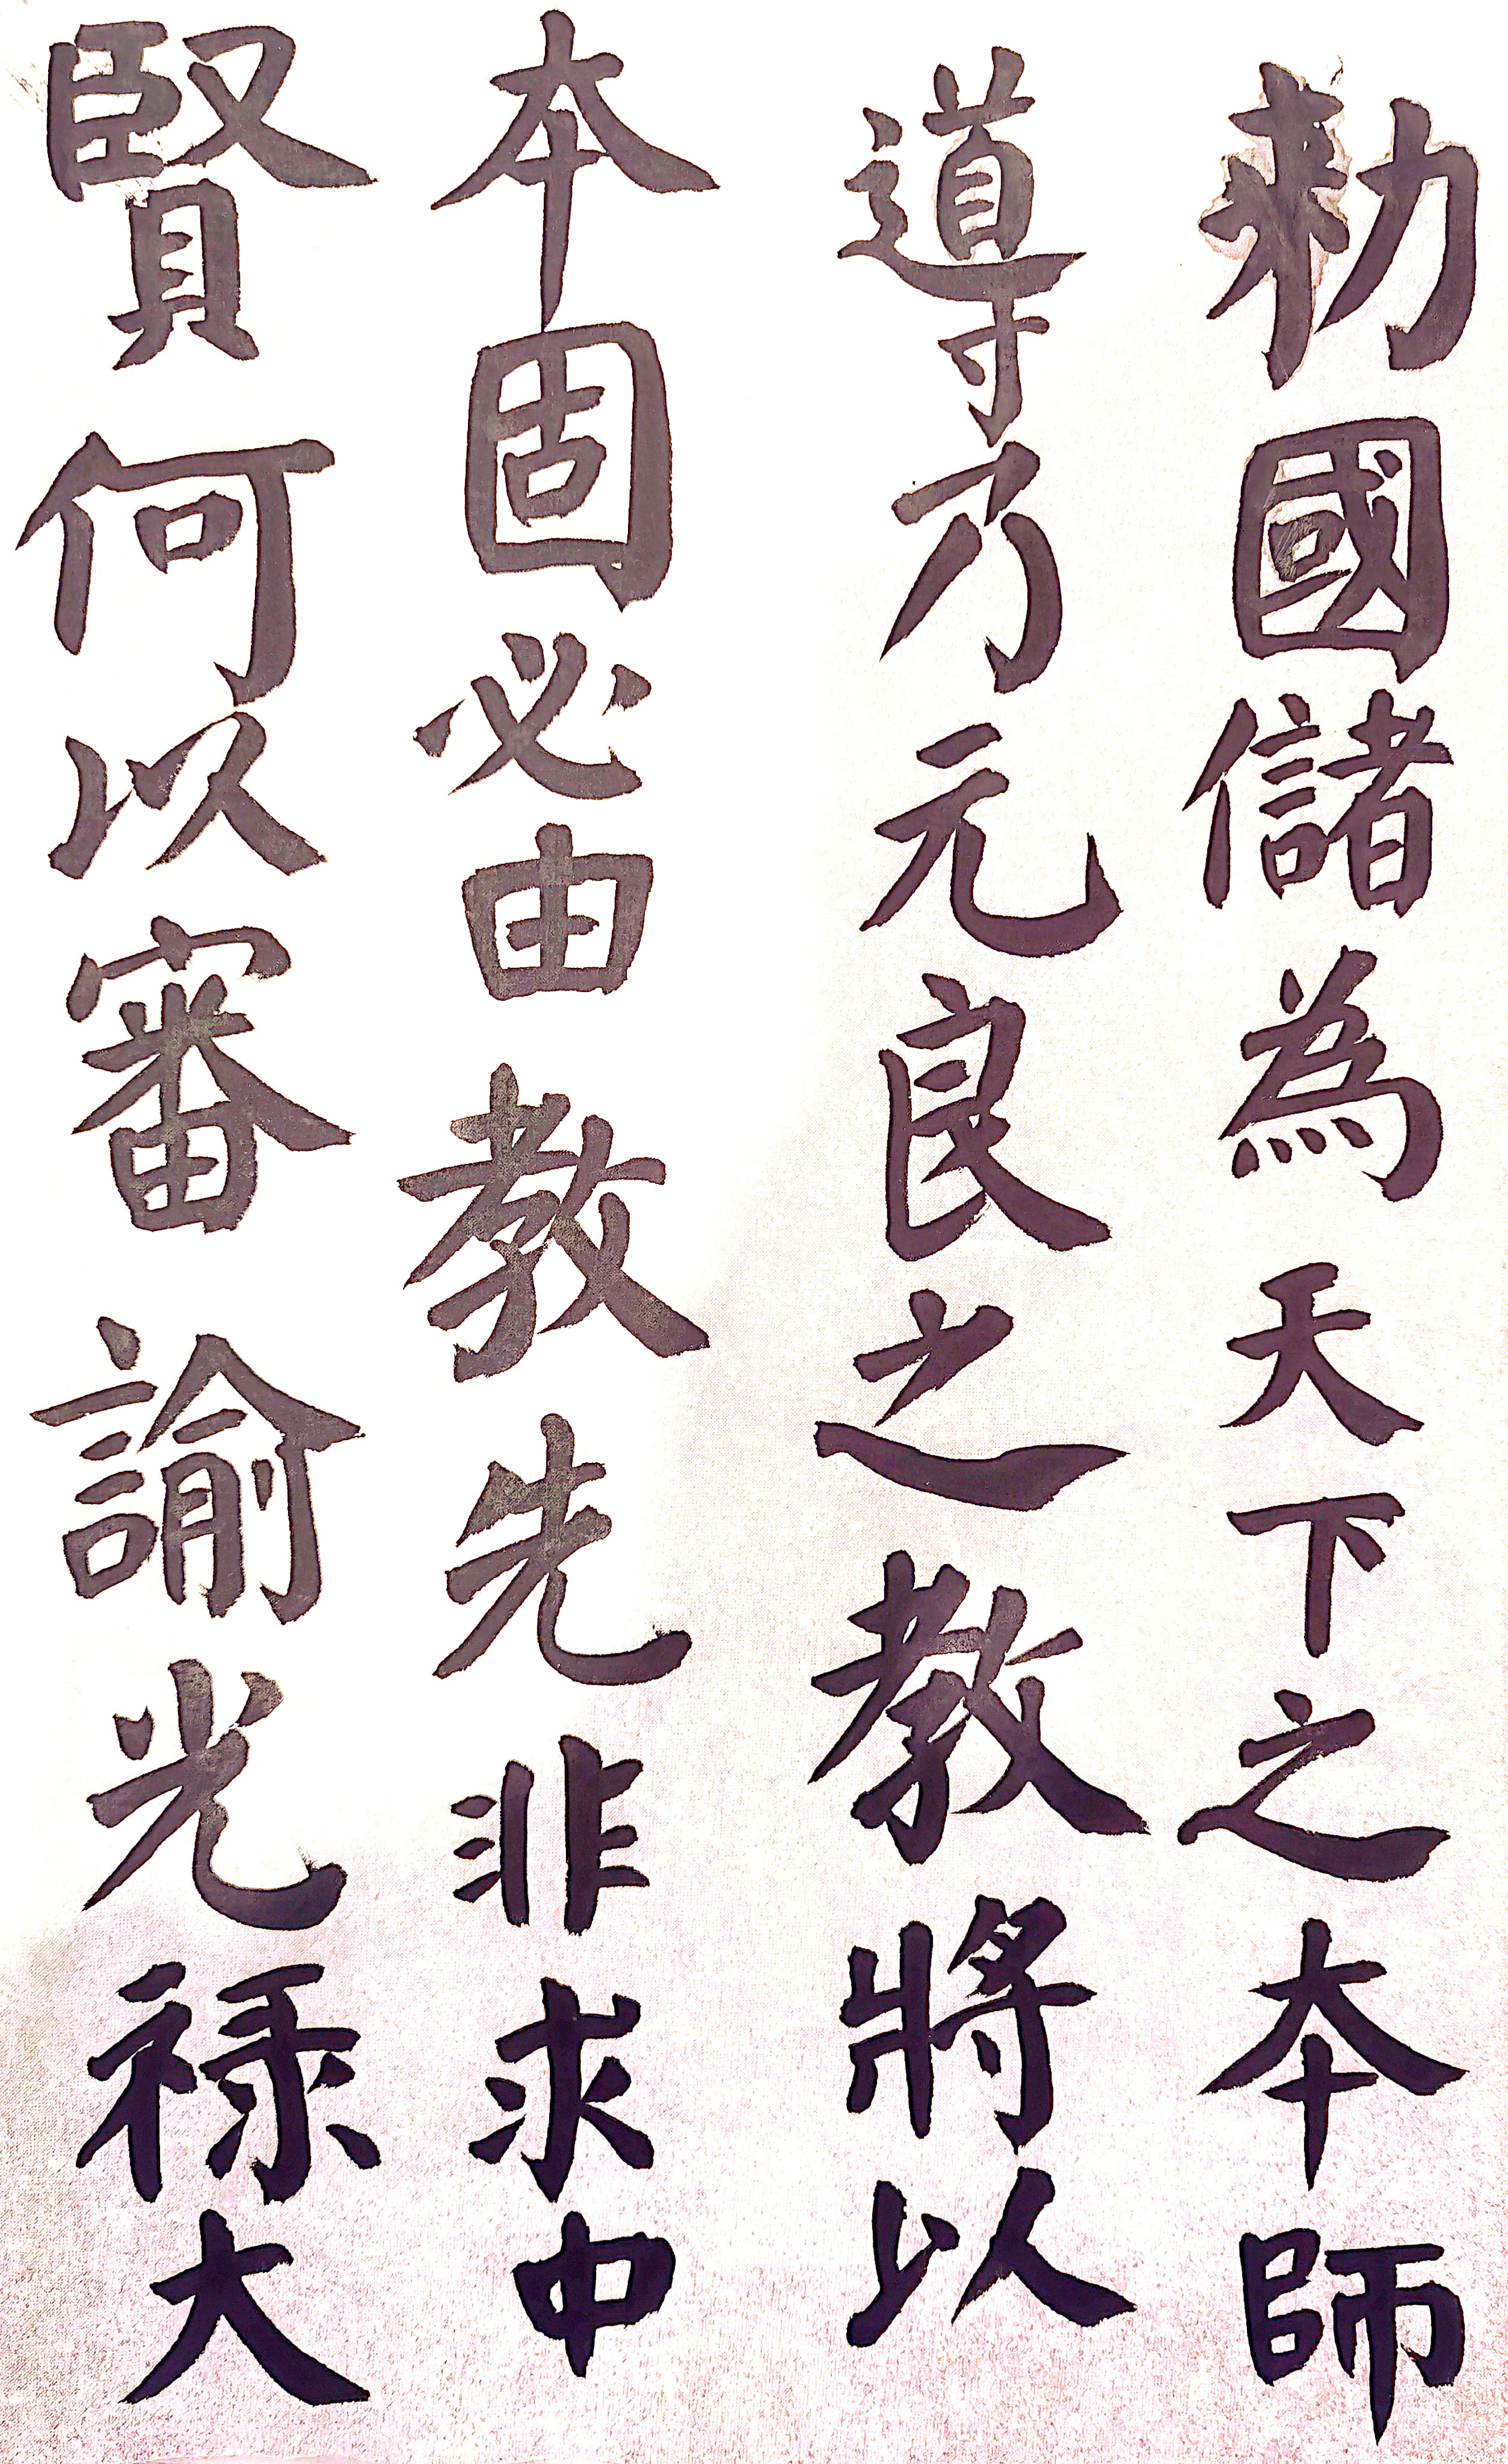 勑國儲為天下之本師
導乃元良之教將以
本固必由教先非求中
賢何以審諭光祿大